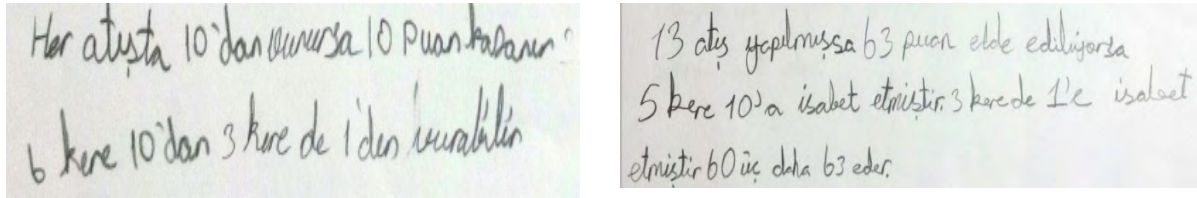 Her atışta 10'dan vurursa 10 puan kazanır
6 kere 10'dan 3 kere de 1'den vurabilir
13 atış yapılmışsa 63 puan elde ediliyorsa
5 kere 10'a isabet etmiştir. 3 kere de 1'e isabet
etmiştir 60 üç daha 63 eder.